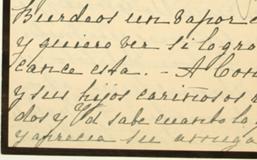 Burdeos un vapor
y quiero ver si logro
cance esta. - A Con
y sus hijos cariñosos
dos y Vd sabe cuanto lo
y aprecia su amiga